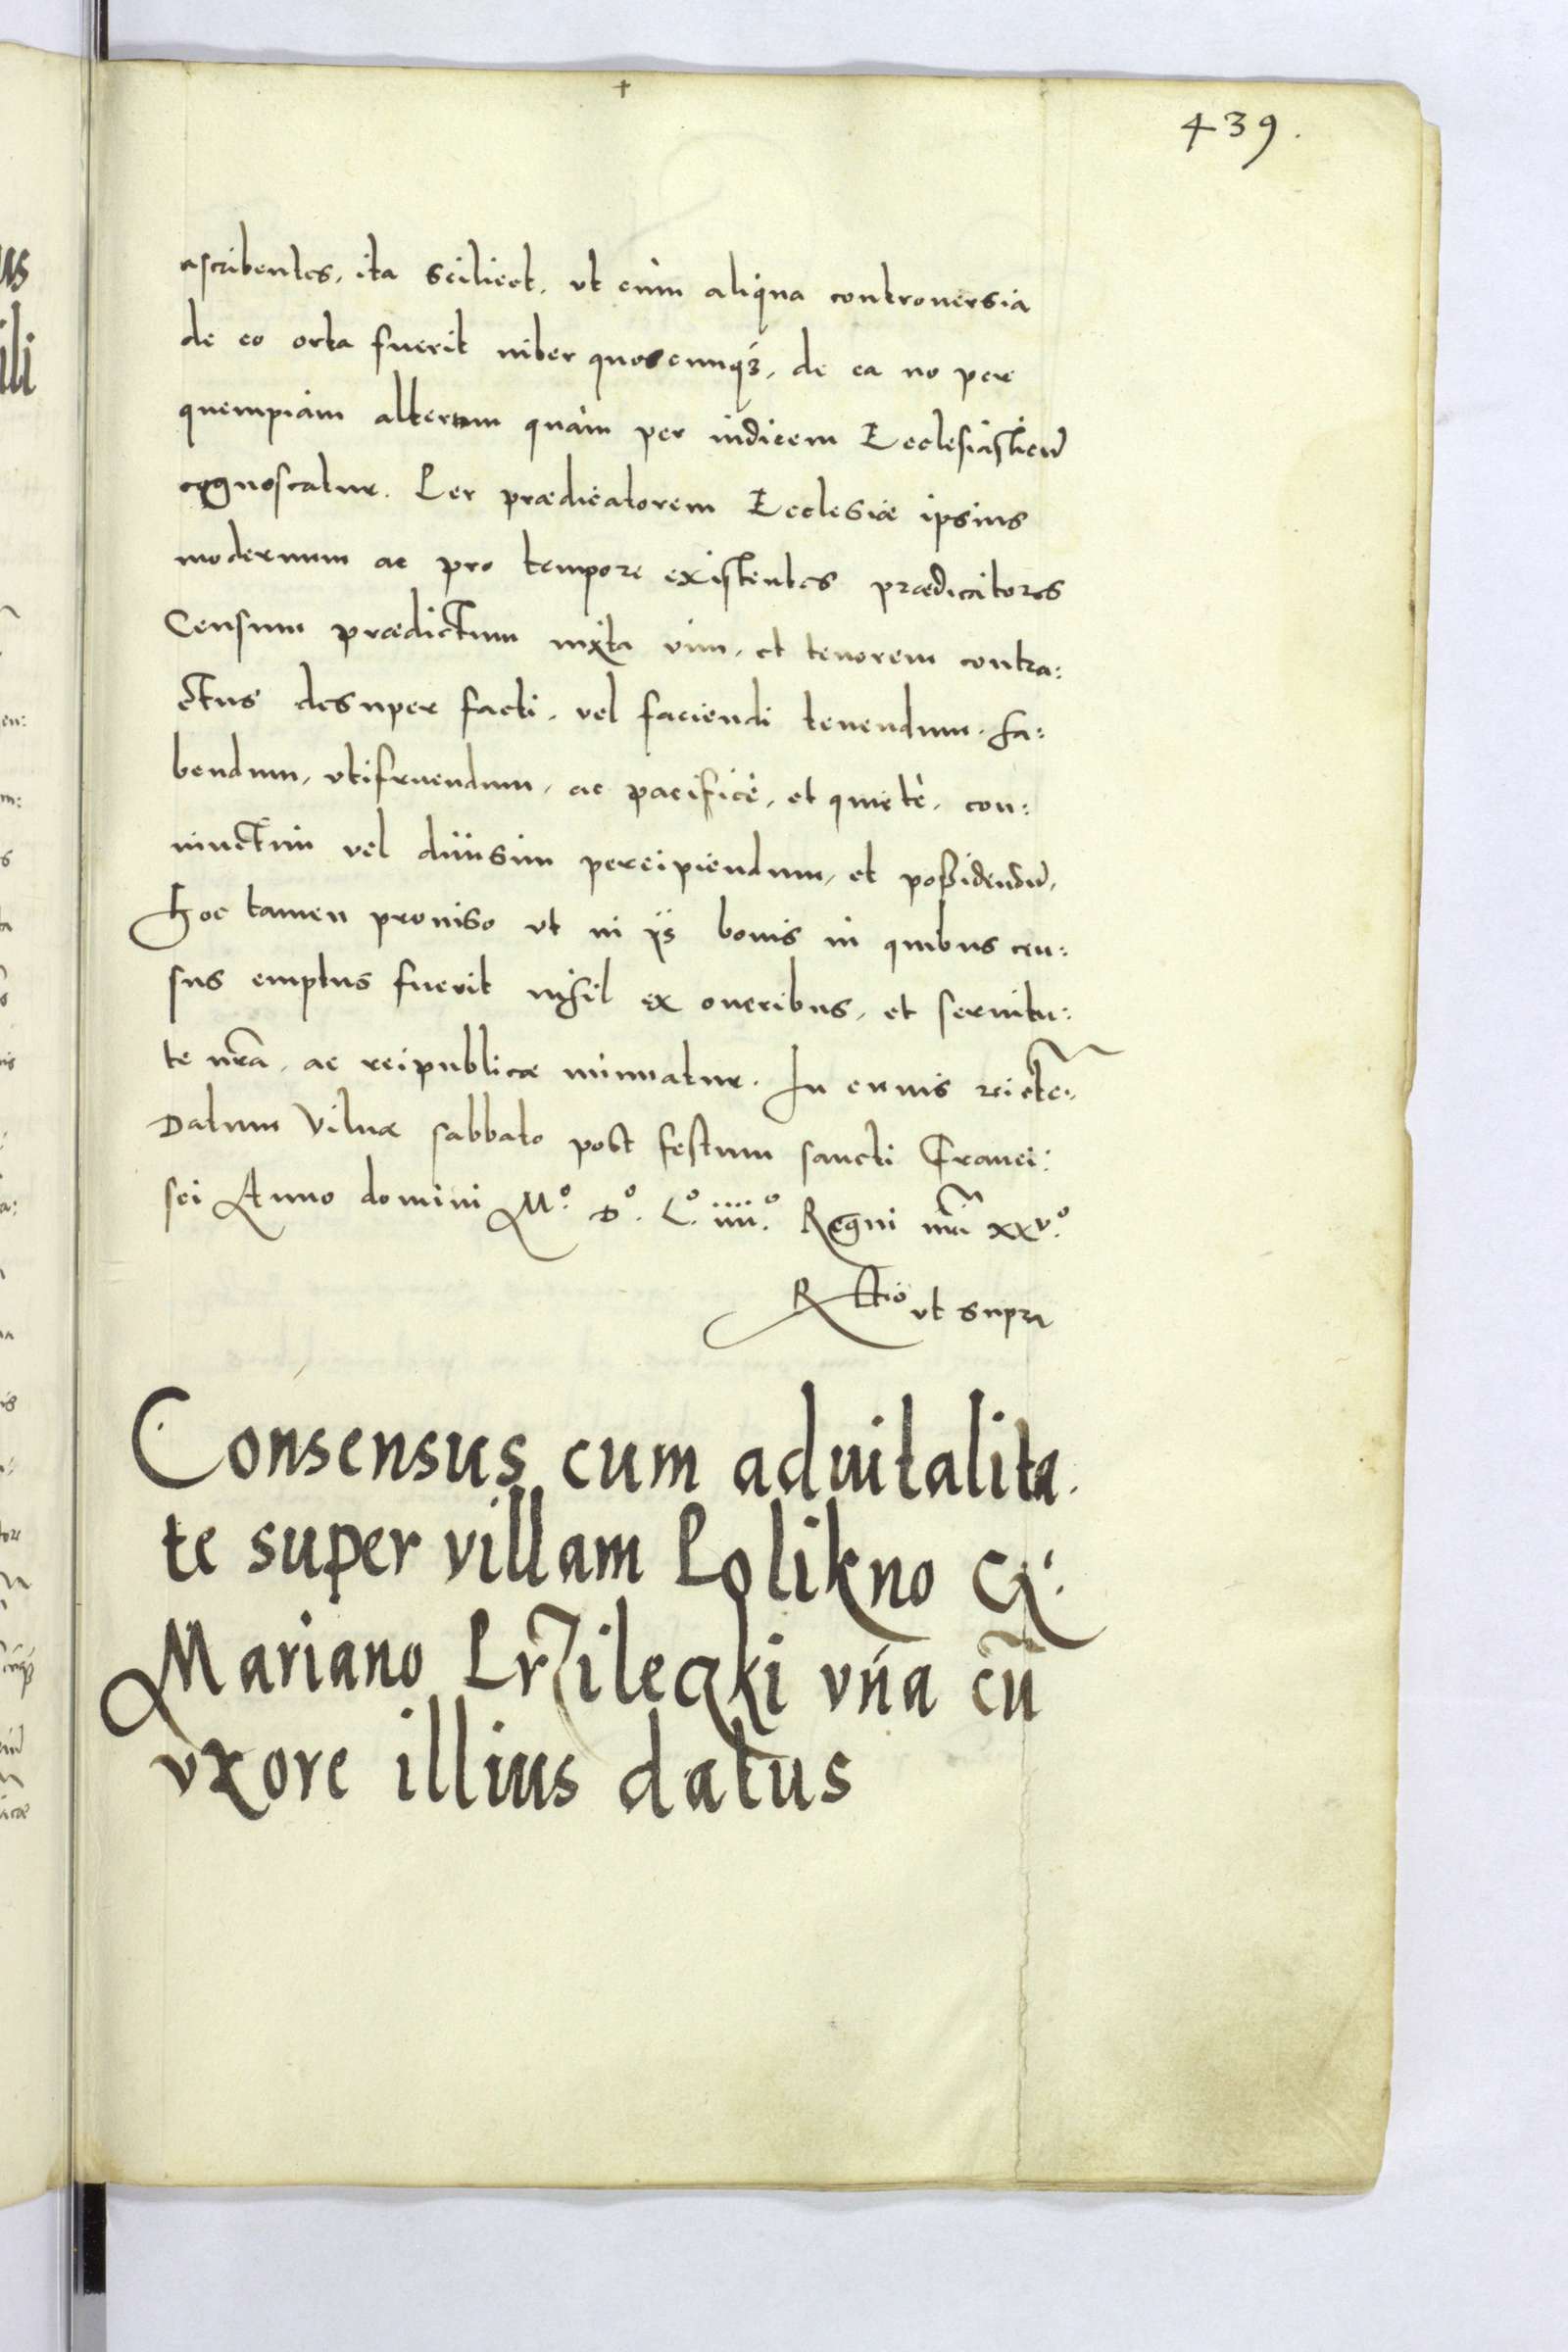 439.
ascribentes, ita scilicet, vt cùm aliqua controuersia
de eo orta fuerit inter quoscunq₃, de ea nō per
quempiam alterum quàm per iudicem Ecclesiasticū
cognoscatur. Per prædicatorem Ecclesiæ ipsius
modernum ac pro tempore existentes prædicatores
Censum prædictum iuxta vim, et tenorem contra:
ctus desuper facti, vel faciendi tenendum, ha:
bendum, vtifruendum, ac pacificè, et quietè, con:
iunctim vel diuisim percipiendum, et possidendū,
Hoc tamen prouiso vt in ijs bonis in quibus cen:
sus emptus fuerit nihil ex oneribus, et seruitu:
te nrã, ac reipublicæ minuatur. In cuius rei etc.
Datum Vilnæ sabbato post festum sancti Franci:
sci Anno domini Mº. Dº. Lº. iiiiº. Regni nri xxvº.
Rctio vt supra
Consensus cum aduitalita
te super villam Polikno G.
Mariano Przileczki vná cū
vxore illius datus
us
ili